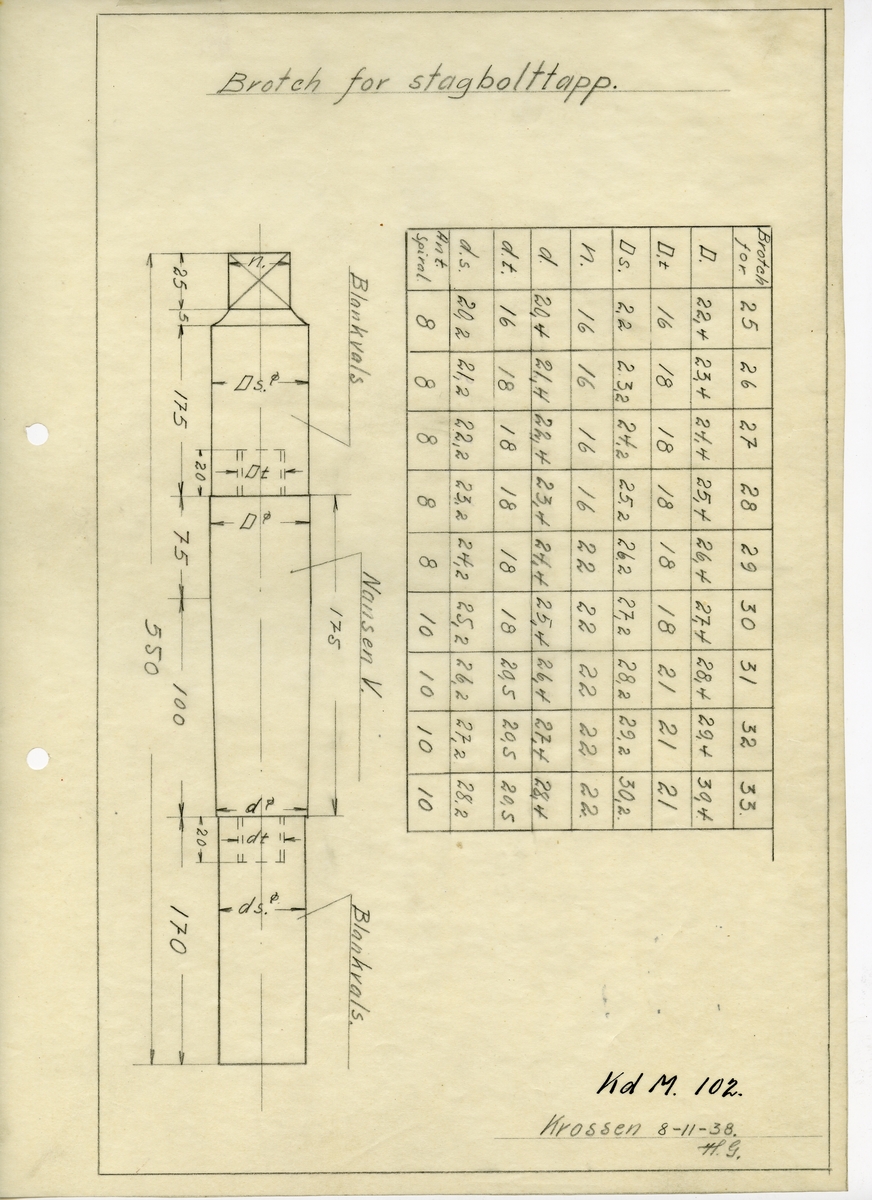 Brotch for stagbolttapp.
Brotch for 25 26 27 28 29 30 31 32 33.
D. 22,4 23,4 24,4 25,4 26,4 27,4 28,4 29,4 30,4.
D,t 16 18 18 18 18 18 21 21 21
Ds. 2,2 23,2 24,2 25,2 26,2 27,2 28,2 29,2 30,2.
n. 16 16 16 16 22 22 22 22 22.
d. 20,4 21,4 22,4 23,4 24,4 25,4 26,4 27,4 28,4
d.t. 16 18 18 18 18 18 20,5 20,5 20,5
d.s. 20,2 21,2 22,2 23,2 24,2 25,2 26,2 27,2 28,2
Ant Spiral. 8 8 8 8 8 10 10 10 10
Blankvals
Nansen V.
Blankvals.
n.
Ds.ø
Dt
Dø
dø
dt
ds.ø
175
20
20
25 5 175 75 100 170
550
Kd M. 102.
Krossen 8-11-38.
H.G.